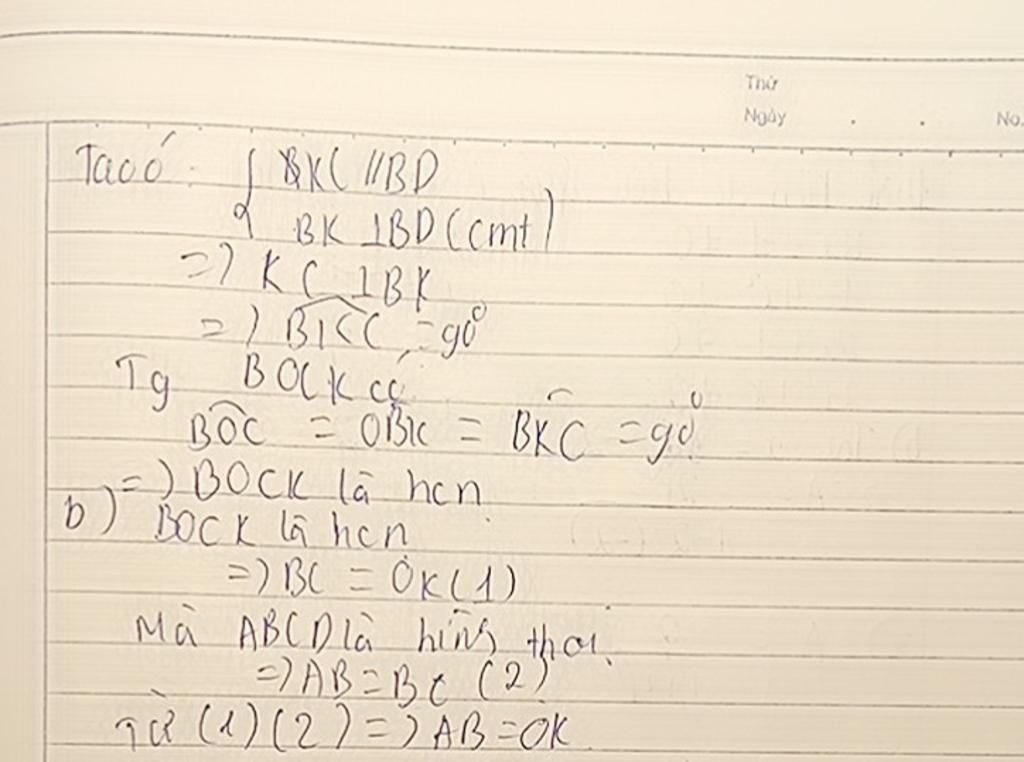 Thứ
Ngày . . No.
Ta có : { KC // BD
BK ⊥ BD (cmt)
=> KC ⊥ BK
=> BKC = 90°
Tg BOCK có
BOC = OBK = BKC = 90°
=> BOCK là hcn.
b) BOCK là hcn
=> BC = OK (1)
Mà ABCD là hình thoi.
=> AB = BC (2)
Từ (1) (2) => AB = OK